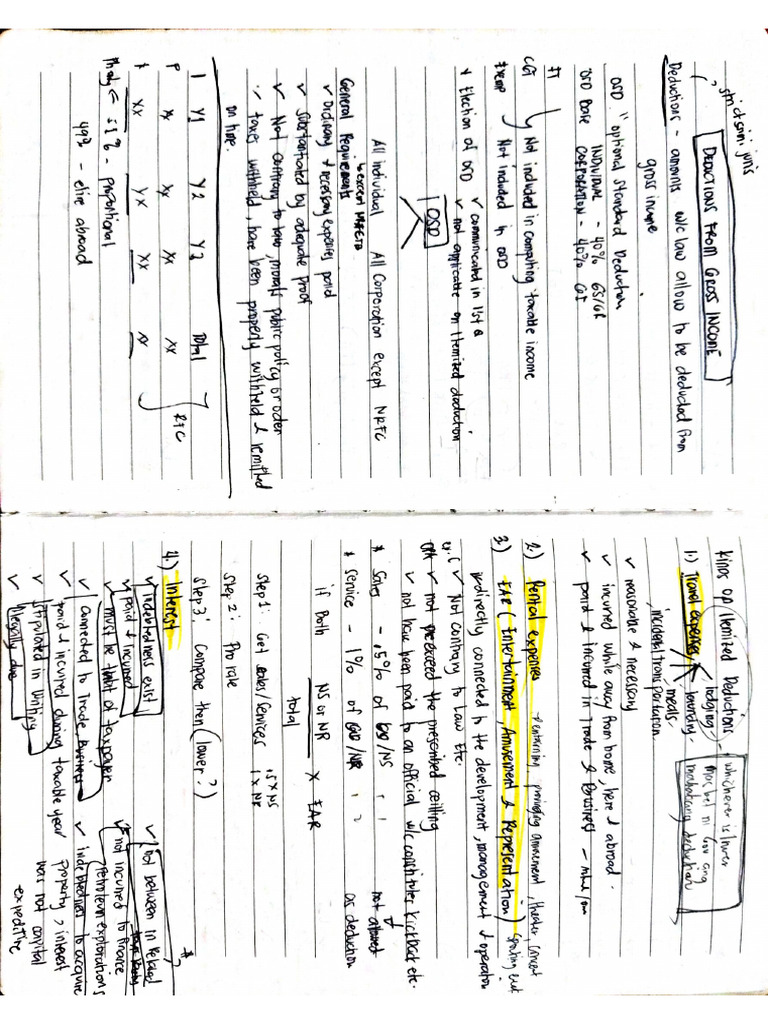 strictissimi juris
DEDUCTIONS FROM GROSS INCOME
Deductions - amounts w/c law allow to be deducted from
gross income
OSD "optional standard Deduction
INDIVIDUAL - 40% GS/GR
OSD Base CORPORATION - 40% GI
FT
CGT Not included in computing taxable income
Exemp Not included in OSD
* Election of OSD ✓ communicated in 1st Q
✓ not applicable on Itemized deduction
OSD
All individual All Corporation except NRFC
except NRAETB
General Requirements
✓ Ordinary & necessary expenses paid
✓ Substantiated by adequate proof
✓ Not contrary to law, morals public policy or order
✓ taxes withheld, have been properly withheld & remitted
on time.
1 Y1 Y2 Y2 Total
P xx xx xx xx
RFC
& xx xx xx xx
- proportional
49% - elire abroad
Kinds of Itemized Deductions
whichever is lower
1) Travel expenses
lodging
laundry
meals
incidental transportation.
✓ reasonable & necessary
✓ incurred while away from home, here & abroad.
✓ paid & incurred in Trade & Business
2.) Rental expenses
entertaining, providing amusement, theater, concert
3.) EAR (Entertainment, Amusement & Representation) sporting event
✓ directly connected to the development, management & operation
✓ Not contrary to Law Etc.
✓ not exceed the prescribed ceiling
✓ not have been paid to an official w/c constitutes kickback etc.
* Sales - .5% of GS/NS not allowed
* Service - 1% of GR/NR as deduction
if Both NS or NR X EAR
total
Step 1: Get Sales/Services .5 x NS
1 x NR
Step 2: Pro rate
Step 3: Compare then (lower?)
4.) Interest
✓ Indebtedness exist
✓ paid & incurred
✓ must be that of taxpayer
✓ Connected to Trade Business
✓ paid & incurred during taxable year
✓ Stipulated in Writing
✓ legally due
✓ not between in Related
✓ not incurred to finance
petroleum explorations
✓ indebtedness to acquire
property, interest
was not capital
expeditire